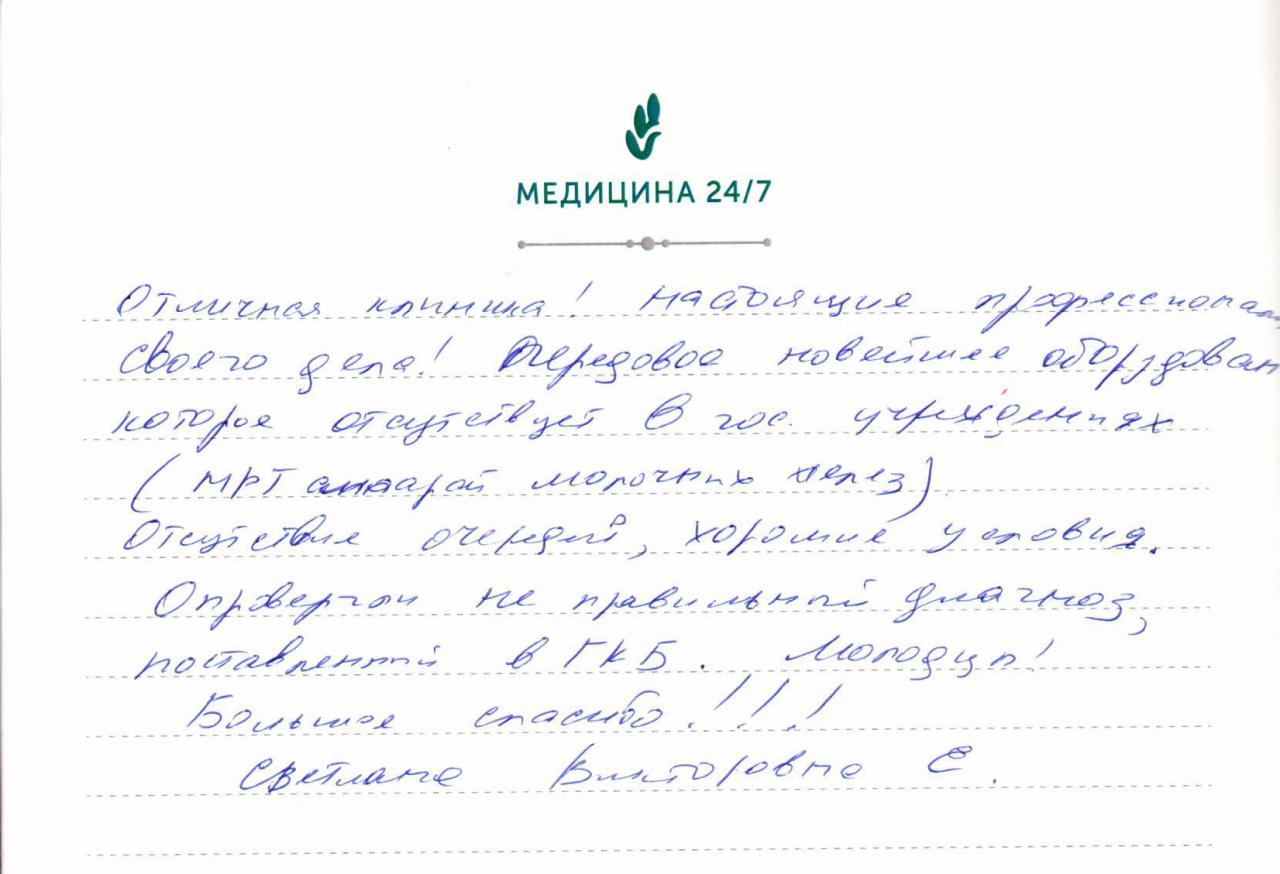 МЕДИЦИНА 24/7
Отличная клиника! Настоящие профессионал
своего дела! Передовое новейшее оборудован
которое отсутствует в гос. учреждениях
(МРТ аппарат молочных желез)
Отсутствие очередей, хорошие условия.
Опровергли не правильный диагноз,
поставленный в ГКБ. Молодцы!
Большое спасибо!!!
Светлана Викторовна Е.